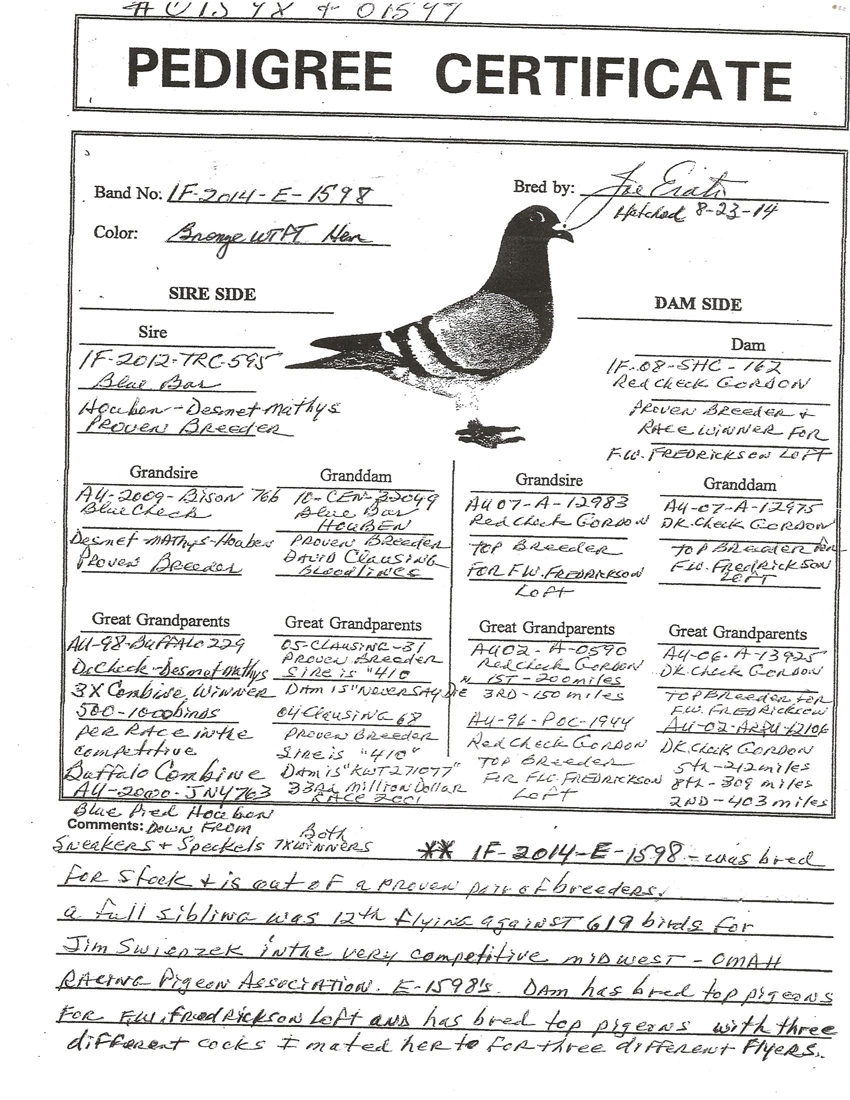 PEDIGREE CERTIFICATE
Band No: IF-2014-E-1598
Bred by:
Hatched 8-23-14
Color: Bronze WTPT Hen
SIRE SIDE
DAM SIDE
Sire
IF-2012-TRC-595
Blue Bar
Houben-Desmet-Mathys
PROVEN BREEDER
Dam
IF-08-SHC-162
Red Check GORDON
PROVEN BREEDER +
RACE WINNER FOR
F.W. FREDRICKSON LOFT
Grandsire
AU-2009-BISON 766
Blue Check
Desmet-MATHYS-Houben
PROVEN BREEDER
Granddam
10-CEN-32049
Blue Bar
HOUBEN
PROVEN BREEDER
DAVID CLAUSING
BLOODLINES
Grandsire
AU 07-A-12983
Red Check GORDON
TOP BREEDER
FOR F.W. FREDRICKSON
LOFT
Granddam
AU-07-A-12975
DK. Check GORDON
TOP BREEDER FOR
F.W. FREDRICKSON
LEFT
Great Grandparents
AU-98-BUFFALO 229
DK Check-Desmet Mathys
3X Combine WINNER
500-1000 birds
PER RACE in the
competitive
Buffalo Combine
AU-2000-JN4763
Blue Pied Houben
Great Grandparents
05-CLAUSING-31
PROVEN BREEDER
SIRE is "410
DAM is "NEVER SAY DIE
04 CLAUSING 68
PROVEN BREEDER
Sire is "410"
DAM is "KWT271077"
33rd Million Dollar
RACE 2001
Great Grandparents
AU02-A-0590
Red Check GORDON
1ST-200 miles
3RD-150 miles
AU-96-POC-1944
Red Check GORDON
TOP BREEDER
FOR F.W. FREDRICKSON
LOFT
Great Grandparents
AU-06-A-13925
DK. Check GORDON
TOP BREEDER FOR
F.W. FREDRICKSON
AU-02-ARPU-12106
DK. Check GORDON
5th-212 miles
8th-309 miles
2ND-403 miles
Comments: DOWN FROM
Sneakers + Speckels Both 7X WINNERS
** IF-2014-E-1598-was bred
FOR Stock + is out of a PROVEN pair of breeders.
a full sibling was 12th flying against 619 birds for
Jim Swierzek in the very competitive MIDWEST-OMAH
RACING Pigeon ASSOCIATION. E-1598's. DAM has bred top pigeons
FOR F.W. FREDRICKSON Loft AND has bred top pigeons with three
different cocks I mated her to for three different Flyers.